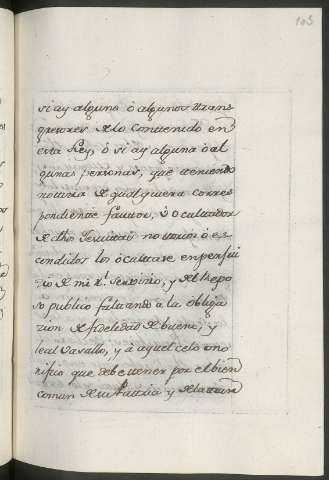 103
si ay alguno ò algunos trans
gresores de lo contenido en
esta Ley, ò si ay alguna ò al
gunas personas, que teniendo
noticia de qualquiera corres
pondiente fautor, ò ocultador
de dhos Jesuitas notorios ò es
condidos los ocultare en perjui
zio de mi Rl. Servicio, y del Repo
so publico faltando a la obliga
zion de fidelidad de bueno, y
leal Vasallo, y à aquel celo ono
rifico que debe tener por el bien
comun de su Patria y de la